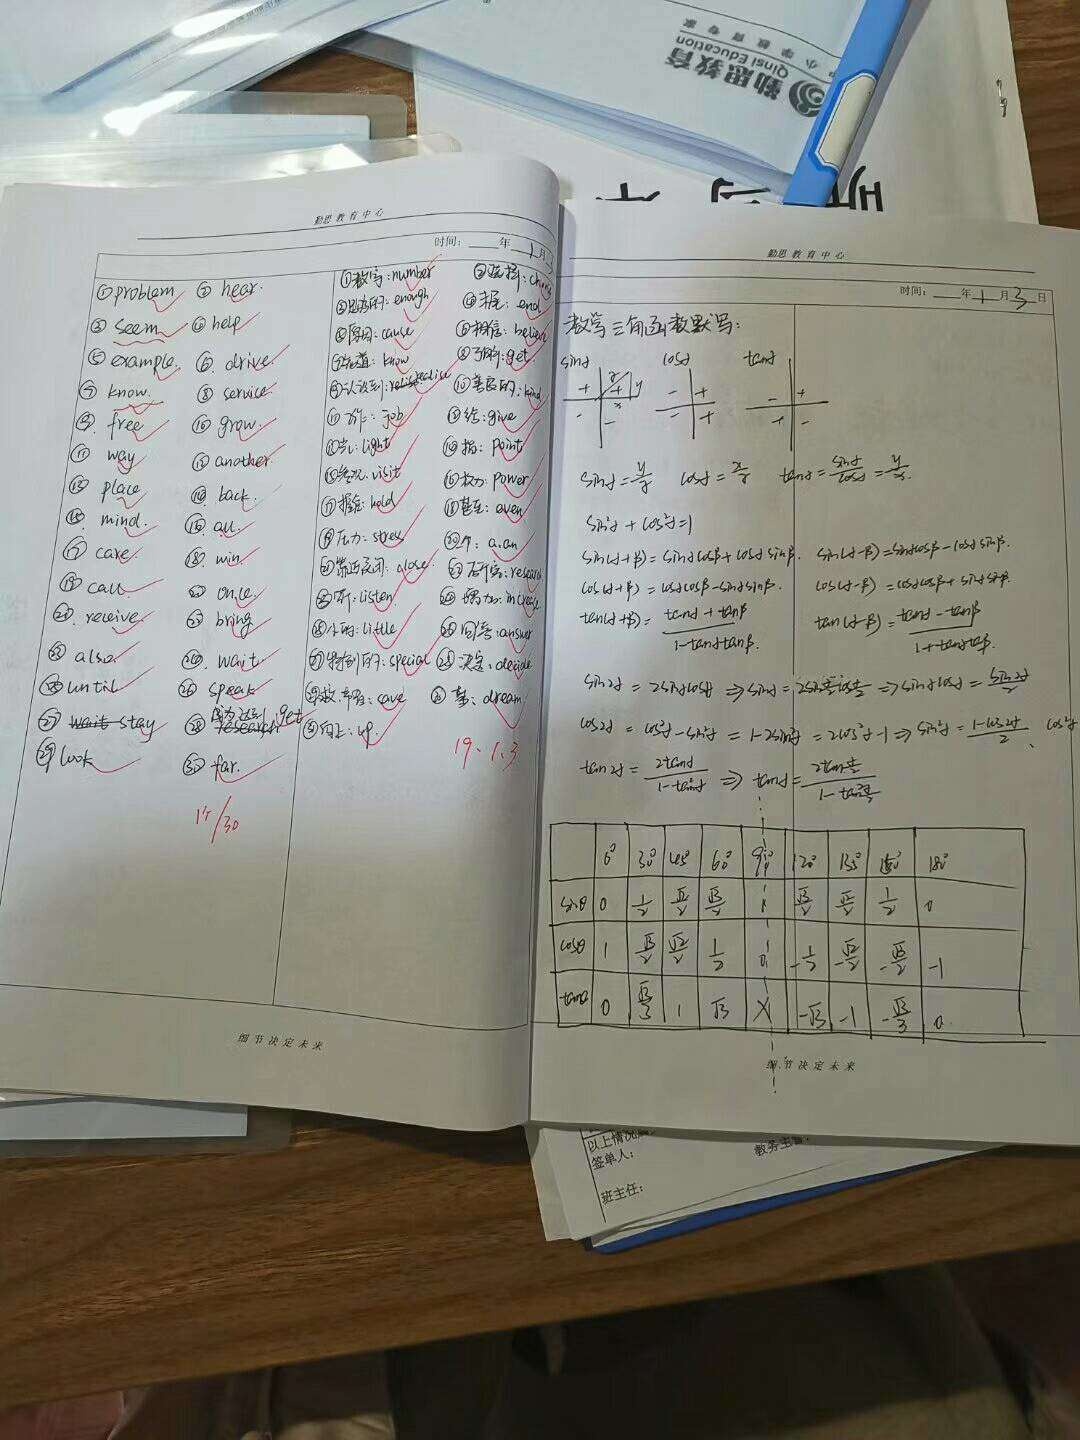 勤思教育
Qinsi Education
中小学教育专家
勤思教育中心
时间： 年 1 月 3
①problem ②hear.
③seem ④help
⑤example. ⑥drive
⑦know. ⑧service
⑨free ⑩grow.
⑪way ⑫another
⑬place ⑭back.
⑮mind. ⑯all.
⑰care ⑱win.
⑲call ⑳once
㉑receive. ㉒bring
㉓also. ㉔wait
㉕until ㉖speak
㉗stay ㉘get
㉙look ㉚far.
/30
①数字：number
③足够的：enough ④末尾：end
⑤原因：cause ⑥相信：believe
⑦知道：know get
⑨认识到：realise ⑩善良的：kind
⑪工作：job ⑫给：give
⑬光：light ⑭指：point
⑮参观：visit ⑯权力：power
⑰握住：hold ⑱甚至：even
⑲压力：stress ⑳个：a.an
close. 研究：research
㉓听：listen. ㉔增加：increase
㉕小的：little ㉖回答：answer
㉗特别的：special ㉘决定：decide
save dream
向上：up
19.1.3
细节决定未来
勤思教育中心
时间： 年 1 月 3 日
数学三角函数默写：
sinα cosα tanα
sinα=y/r cosα=x/r tanα=sinα/cosα=y/x.
sin²α+cos²α=1
sin(α+β)=sinαcosβ+cosαsinβ. sin(α-β)=sinαcosβ-cosαsinβ.
cos(α+β)=cosαcosβ-sinαsinβ. cos(α-β)=cosαcosβ+sinαsinβ.
tan(α+β)=tanα+tanβ/1-tanαtanβ. tan(α-β)=tanα-tanβ/1+tanαtanβ.
sin2α=2sinαcosα⇒sinα=2sin α/2 cos α/2⇒sinαcosα=sin2α/2
cos2α=cos²α-sin²α=1-2sin²α=2cos²α-1⇒sin²α=1-cos2α/2、cos²α
tan2α=2tanα/1-tan²α⇒tanα=2tan α/2/1-tan² α/2
0° 30° 45° 60° 90° 120° 135° 150° 180°
sinθ 0 1/2 √2/2 √3/2 1 √3/2 √2/2 1/2 0
cosθ 1 √3/2 √2/2 1/2 0 -1/2 -√2/2 -√3/2 -1
tanθ 0 √3/3 1 √3 X -√3 -1 -√3/3 0
细节决定未来
以上情况
签单人：
教务主管：
班主任：